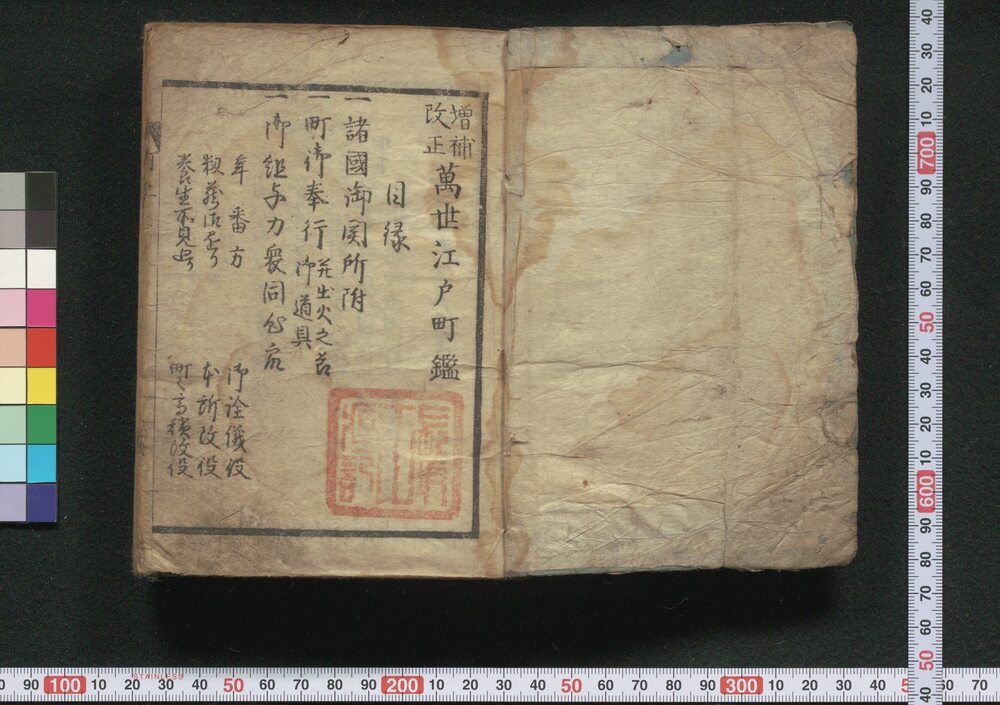 増補
改正
萬世江戸町鑑
目録
一諸國御関所附
一町御奉行 并出火之節
御道具
一御組与力衆同心衆
年番方
御詮儀役
本所改役
養生所見廻り
町々高積改役